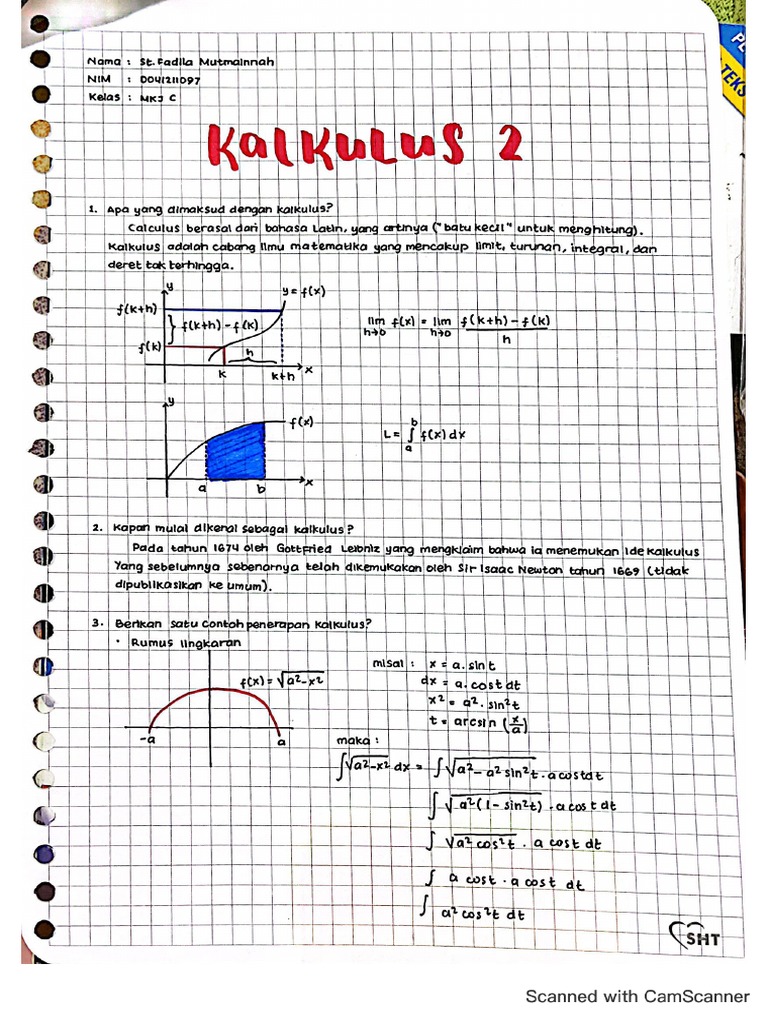 Nama : St. Fadila Mutmainnah
NIM : D041211097
Kelas : MKJ C
KALKULUS 2
1. Apa yang dimaksud dengan kalkulus?
Calculus berasal dari bahasa Latin, yang artinya ("batu kecil" untuk menghitung).
Kalkulus adalah cabang ilmu matematika yang mencakup limit, turunan, integral, dan
deret tak terhingga.
y
y = f(x)
f(k+h)
} f(k+h) - f(k)
f(k)
h
k
k+h
x
lim h→0 f(x) = lim h→0 f(k+h) - f(k) / h
y
f(x)
a
b
x
L = ∫ₐᵇ f(x) dx
2. Kapan mulai dikenal sebagai kalkulus?
Pada tahun 1674 oleh Gottfried Leibniz yang mengklaim bahwa ia menemukan ide kalkulus
Yang sebelumnya sebenarnya telah dikemukakan oleh Sir Isaac Newton tahun 1669 (tidak
dipublikasikan ke umum).
3. Berikan satu contoh penerapan kalkulus?
• Rumus lingkaran
f(x) = √a²-x²
-a
a
misal : x = a. sin t
dx = a. cos t dt
x² = a². sin²t
t = arcsin (x/a)
maka :
∫√a²-x² dx = ∫√a² - a² sin²t . a cos t dt
∫ √a²(1 - sin²t) . a cos t dt
∫ √a² cos²t . a cos t dt
∫ a cos t . a cos t dt
∫ a² cos²t dt
SHT
PE
TEKS
Scanned with CamScanner